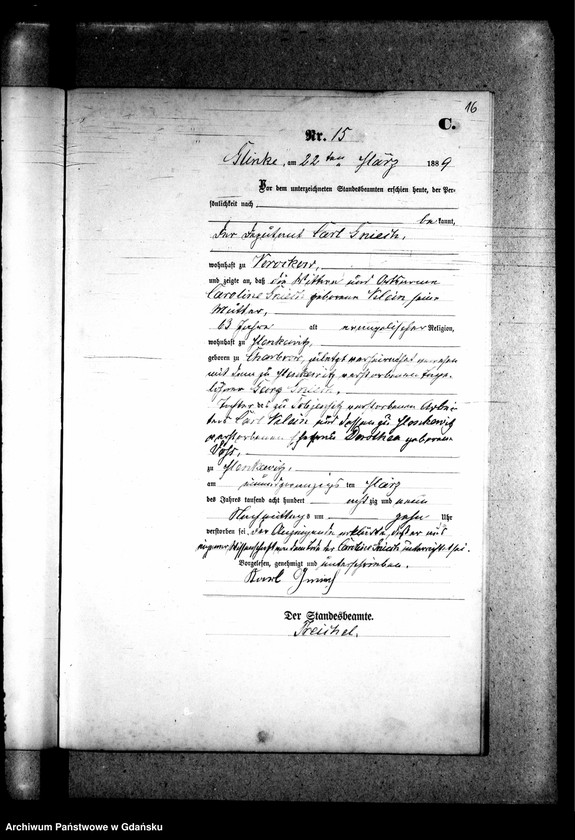 16
C.
Nr. 15
Glinke, am 22ten März 1889
Vor dem unterzeichneten Standesbeamten erschien heute, der Per-
sönlichkeit nach
bekannt,
der Deputant Carl Gniech,
wohnhaft zu
und zeigte an, daß die Wittwe und Ortsarme
Caroline Gniech geborene Klein seine
Mutter,
63 Jahre alt evangelischer Religion,
wohnhaft zu
geboren zu Charbrow, zuletzt verheirathet gewesen
mit dem zu verstorbenen Tage-
löhner Georg Gniech,
Tochter des zu verstorbenen Arbei-
ters Carl Klein und dessen zu
verstorbenen Ehefrau Dorothea geborene
zu
am ten März
des Jahrs tausend acht hundert achtzig und neun
Nachmittags um zehn Uhr
verstorben sei. Der Anzeigende erklärte, daß er aus
eigener Wissenschaft von dem Tode der Caroline Gniech unterrichtet sei.
Vorgelesen, genehmigt und unterschrieben.
Karl
Der Standesbeamte.
Treichel.
Archiwum Państwowe w Gdańsku